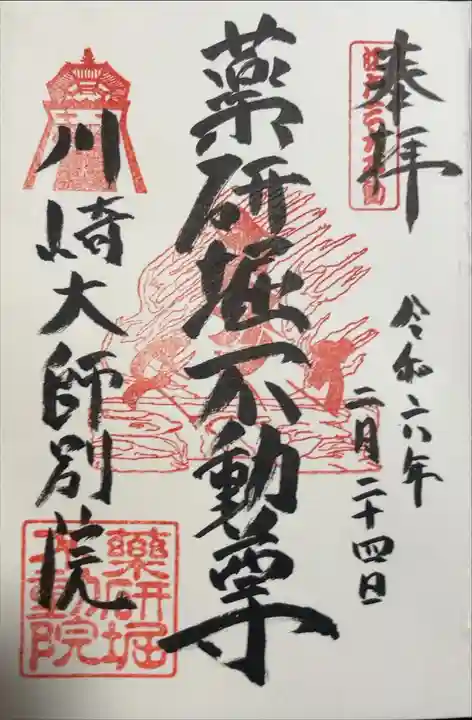 奉拝
令和六年
二月二十四日
薬研堀不動尊
川崎大師別院
薬研堀
不動院